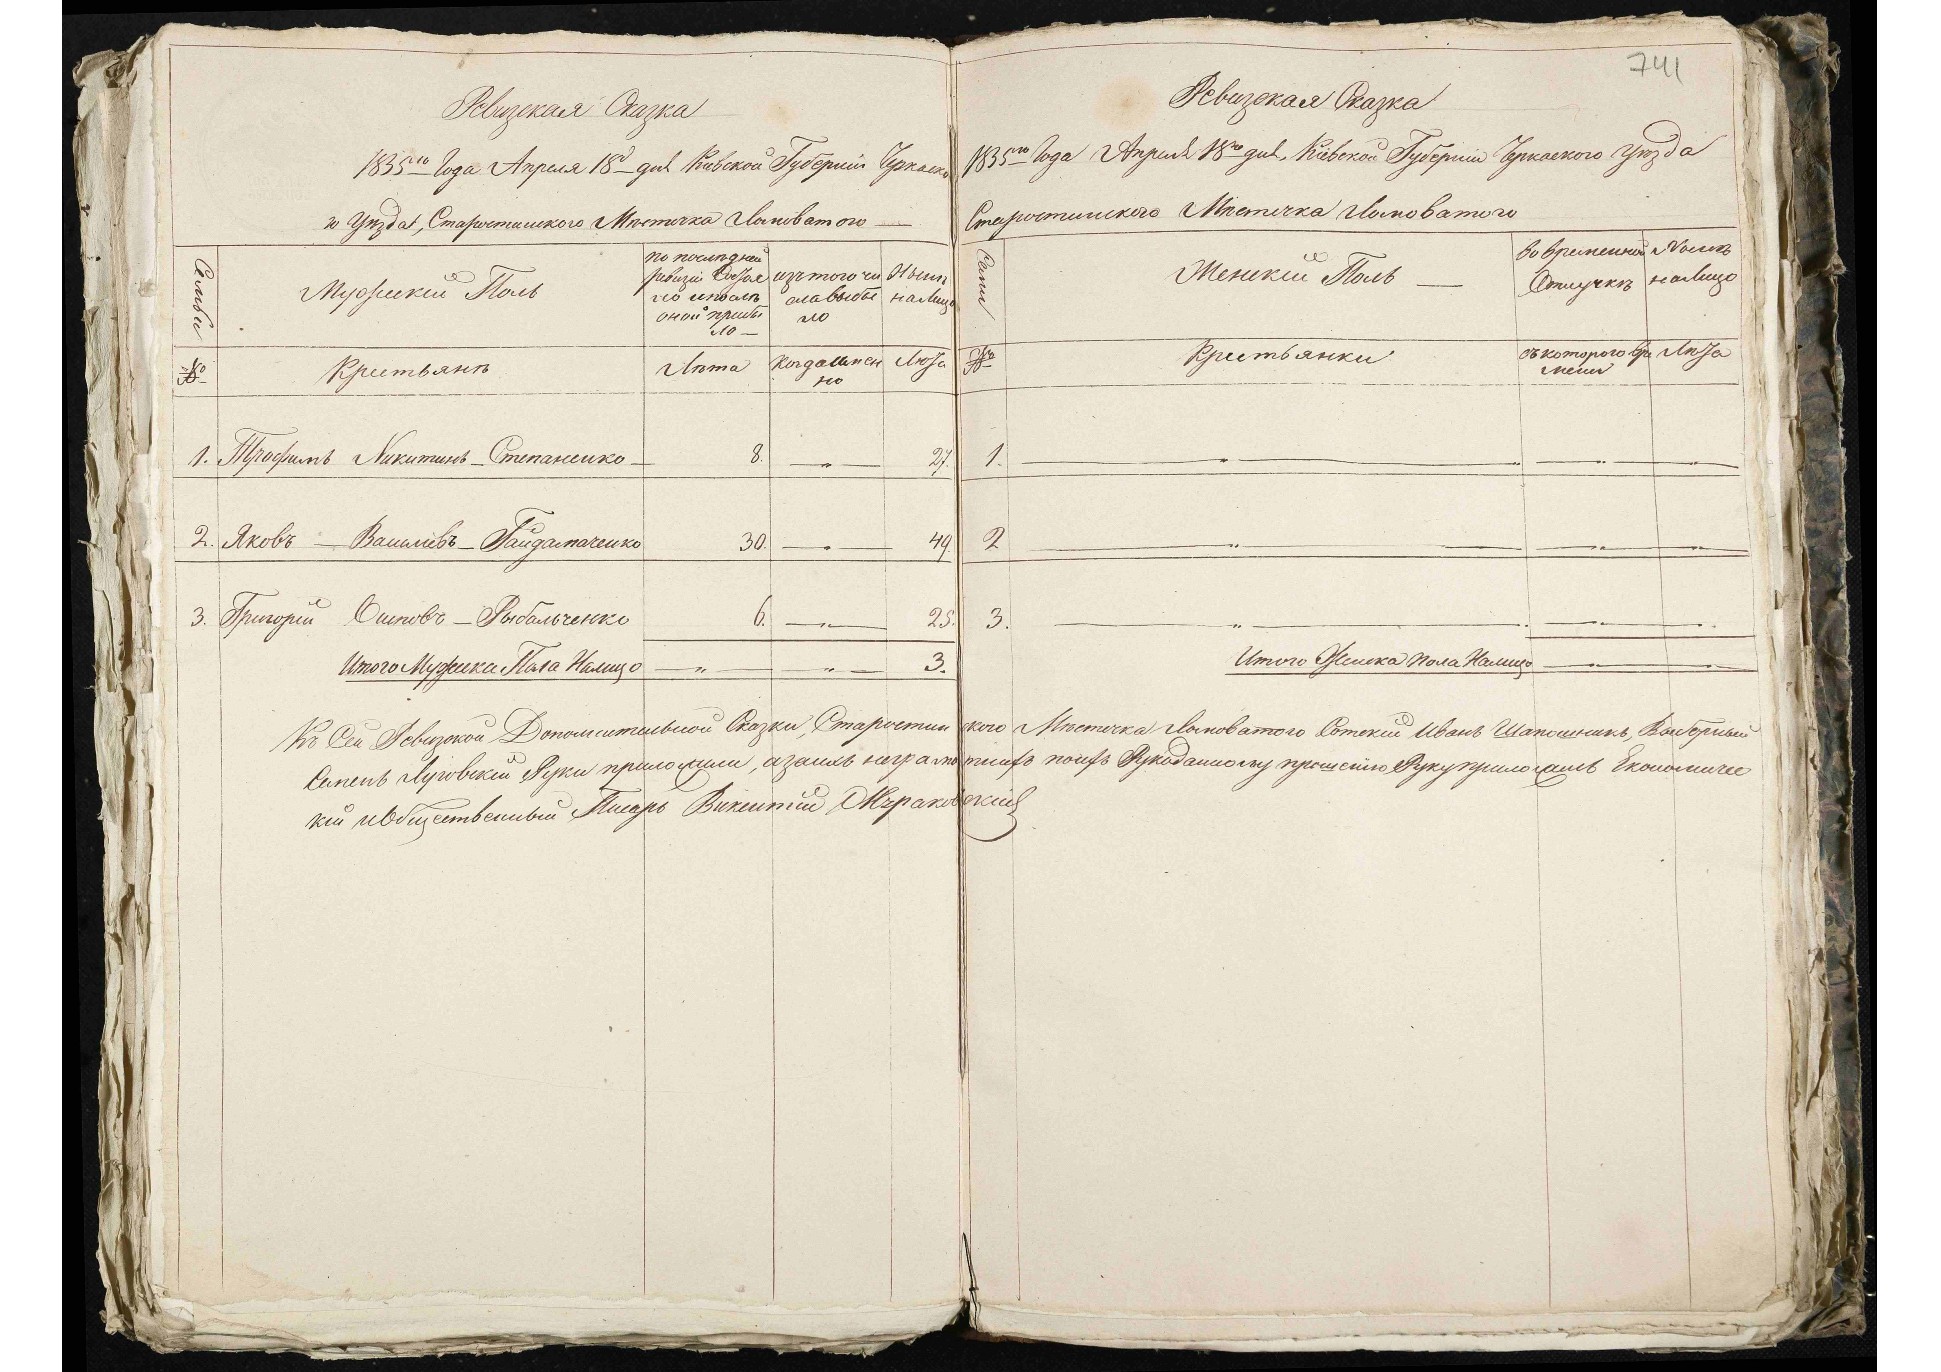 Ревизская Сказка
1835го Года Апреля 18 д дня Киевской Губернии Черкаска
го Уезда, Старостинского Местечка Ломоватого
Семьи
Мужеский Полъ
по последней ревизии состоя ло и после оной прибы ло
изъ того чи сла выбы ло
Ныне на Лицо
№
Крестьянъ
Лета
когда имен но
Лета
1. Трофимъ Никитинъ - Степаненко - 8. - " - 27.
2. Яковъ - Васильевъ - Гайдамаченко 30. - " - 49.
3. Григорий Осиповъ - Рыбальченко 6. - " - 25.
Итого Мужеска Пола Налицо - " - " - 3.
741
Ревизская Сказка
1835го Года Апреля 18го дня, Киевской Губернии Черкаского Уезда
Старостинского Местечка Ломоватого
Семьи
Женский Полъ
во временной Отлучке
Ныне на Лицо
№
Крестьянки
съ которого вре мени
Лета
1. - " - " - " -
2 - " - " - " -
3. - " - " - " -
Итого Женска пола Налицо
Къ Сей Ревизской Дополнительной Сказки, Старостинского Местечка Ломоватого Сотский Иванъ Шапошникъ, Выборный
Семенъ Луговский Руки приложили, а за ихъ неграмотныхъ по ихъ Рукоданному прошению Руку приложилъ Економичес
кий и Общественный Писарь Викентий Мураковский